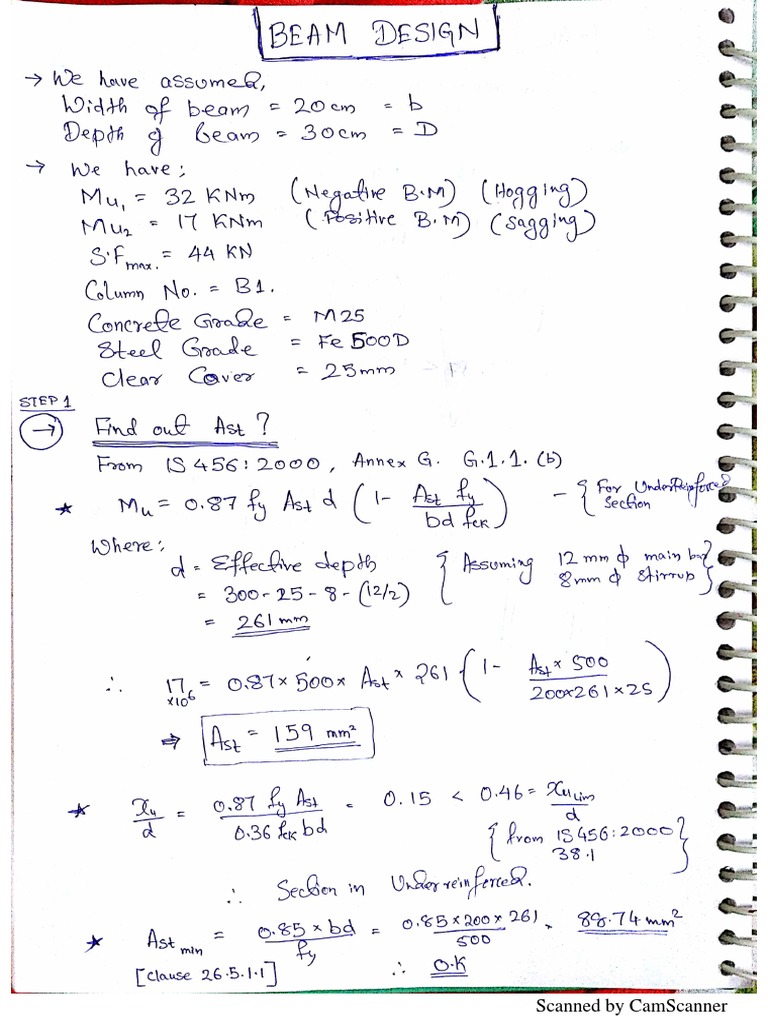 BEAM DESIGN
→ We have assumed,
Width of beam = 20cm = b
Depth of Beam = 30cm = D
→ We have:
Mu₁ = 32 KNm (Negative B.M) (Hogging)
Mu₂ = 17 KNm (Positive B.M) (Sagging)
S.Fmax. = 44 KN
Column No. = B1.
Concrete Grade = M25
Steel Grade = Fe 500D
Clear Cover = 25mm
STEP 1
→ Find out Ast?
From IS 456:2000, Annex G. G.1.1. (b)
* Mu = 0.87 fy Ast d (1 - Ast fy / bd fck) - {For UnderReinforced Section
Where:
d = Effective depth {Assuming 12 mm ф main bar}
= 300-25-8-(12/2) {8mm ф stirrup}
= 261mm
∴ 17×10⁶ = 0.87×500× Ast × 261 (1 - Ast × 500 / 200×261×25)
⇒ Ast = 159 mm²
* Xu/d = 0.87 fy Ast / 0.36 fck bd = 0.15 < 0.46 = Xulim/d
{from IS456:2000}
38.1
∴ Section in Underreinforced.
* Ast min = 0.85 × bd / fy = 0.85×200×261 / 500 = 88.74 mm²
[Clause 26.5.1.1] ∴ O.K
Scanned by CamScanner